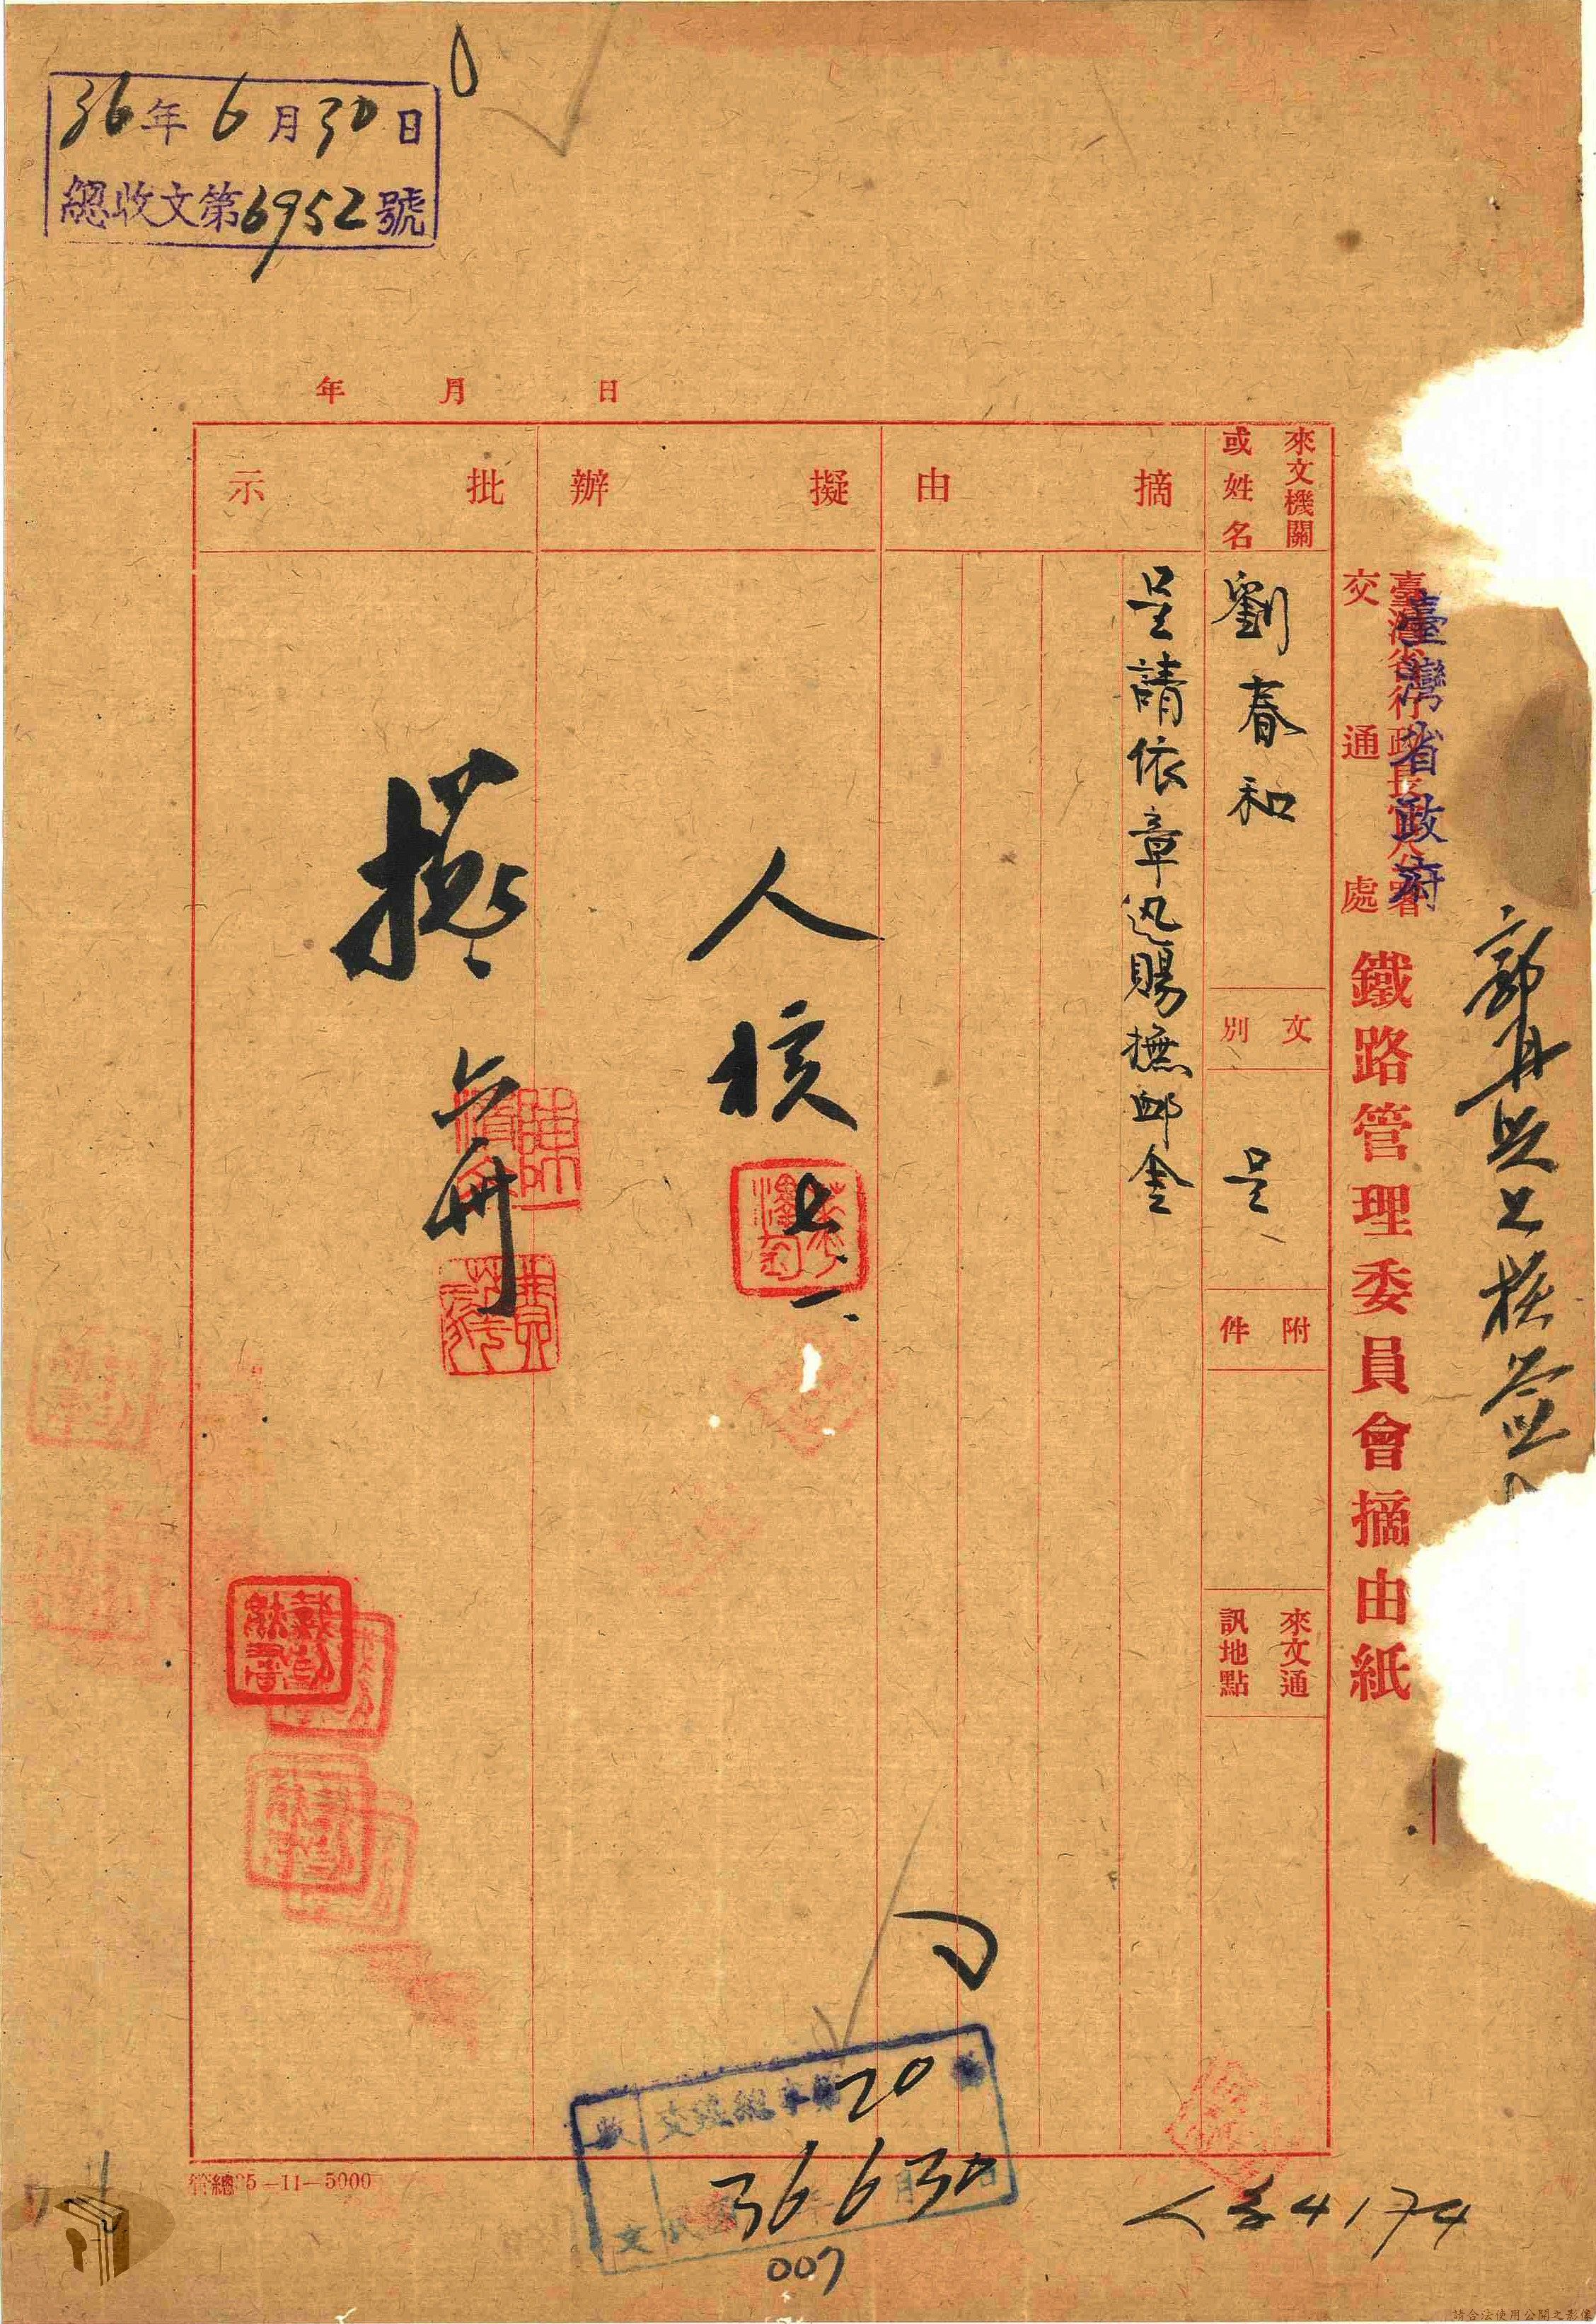 36年6月30日
總收文第6952號
年 月 日
臺灣省政府
臺灣省行政長官公署
交通處
鐵路管理委員會摘由紙
來文機關
或姓名
劉春和
文別
呈
附件
來文通
訊地點
摘由
呈請依章迅賜撫卹金
擬辦
人核
七、一、
批示
擬
20
36 6 30
007
人字4174
管總35-11-5000
請合法使用公開之影像